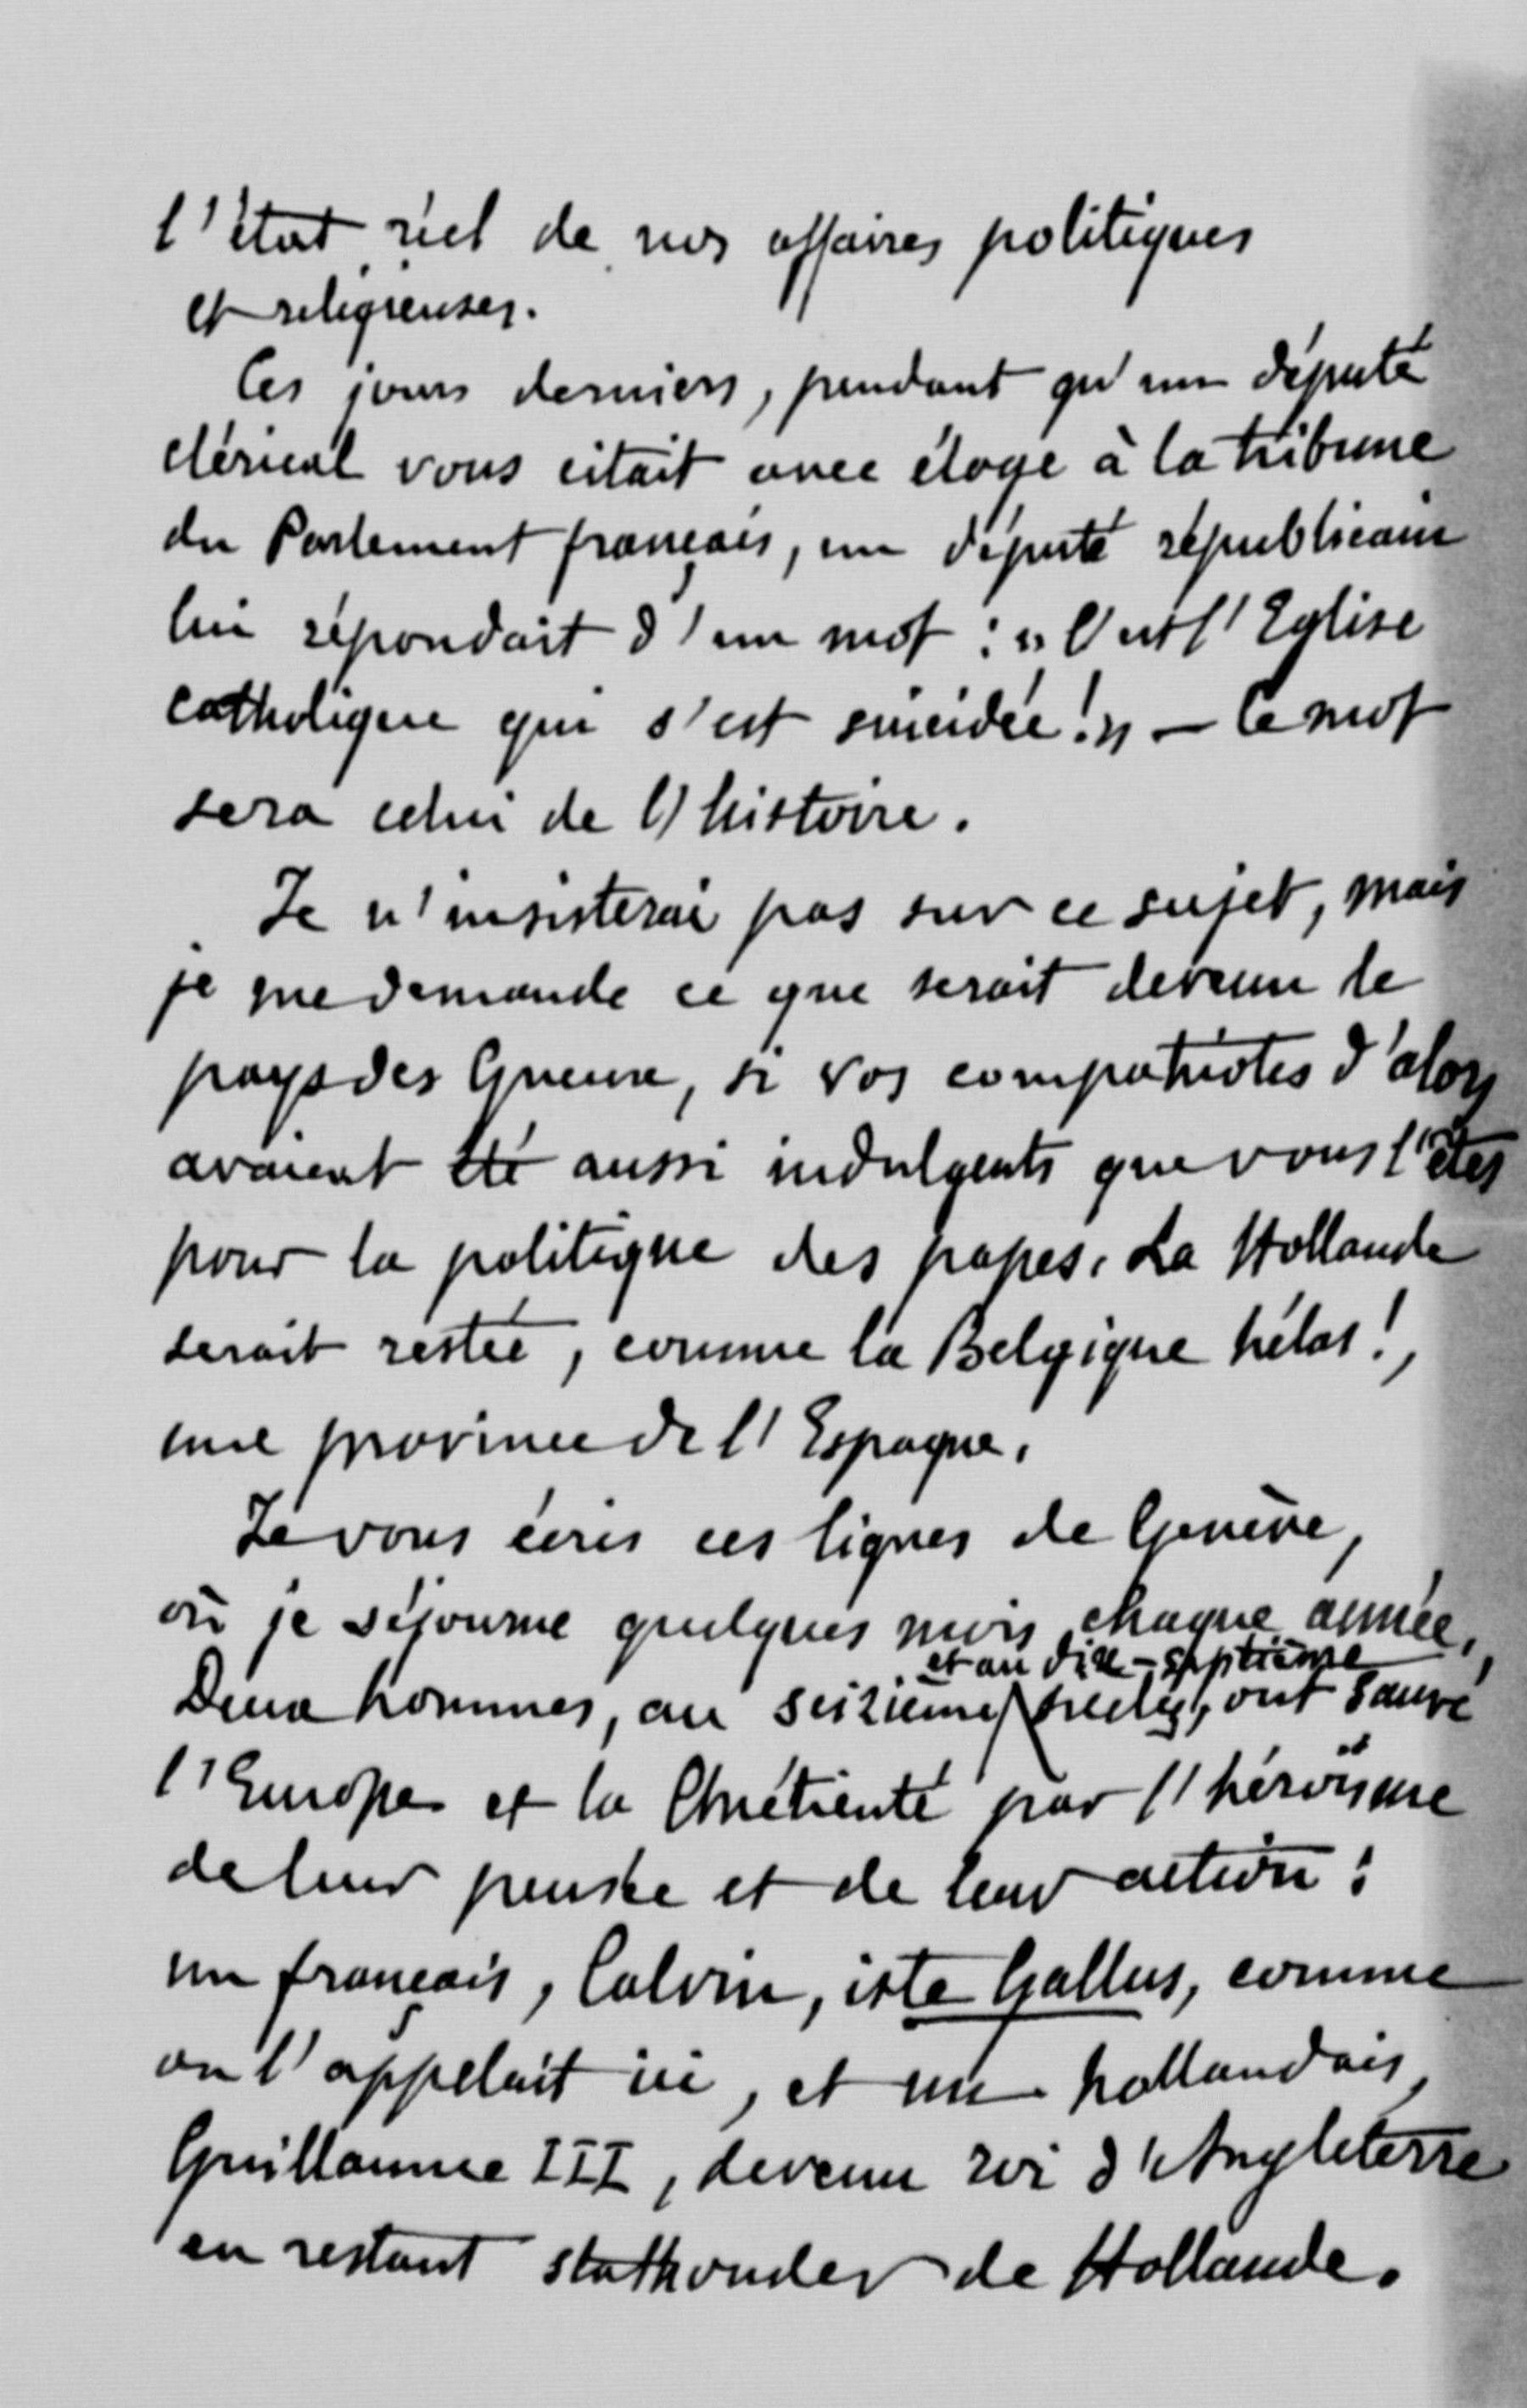 l'état réel de nos affaires politiques
et religieuses.
Ces jours derniers, pendant qu'un député
clérical vous citait avec éloge à la tribune
du Parlement français, un député républicain
lui répondait d'un mot : « C'est l'Eglise
catholique qui s'est suicidée ! » – Ce mot
sera celui de l'histoire.
Je n'insisterai pas sur ce sujet, mais
je me demande ce que serait devenu le
pays des Gueux, si vos compatriotes d'alors
avaient été aussi indulgents que vous l'êtes
pour la politique des papes. La Hollande
serait restée, comme la Belgique hélas !,
une province de l'Espagne.
Je vous écris ces lignes de Genève,
où je séjourne quelques mois chaque année.
et au dix-septième
Deux hommes, au seizième siècles, ont sauvé
l'Europe et la Chrétienté par l'héroïsme
de leur pensée et de leur action :
un français, Calvin, iste Gallus, comme
on l'appelait ici, et un hollandais,
Guillaume III, devenu roi d'Angleterre
en restant stathouder de Hollande.